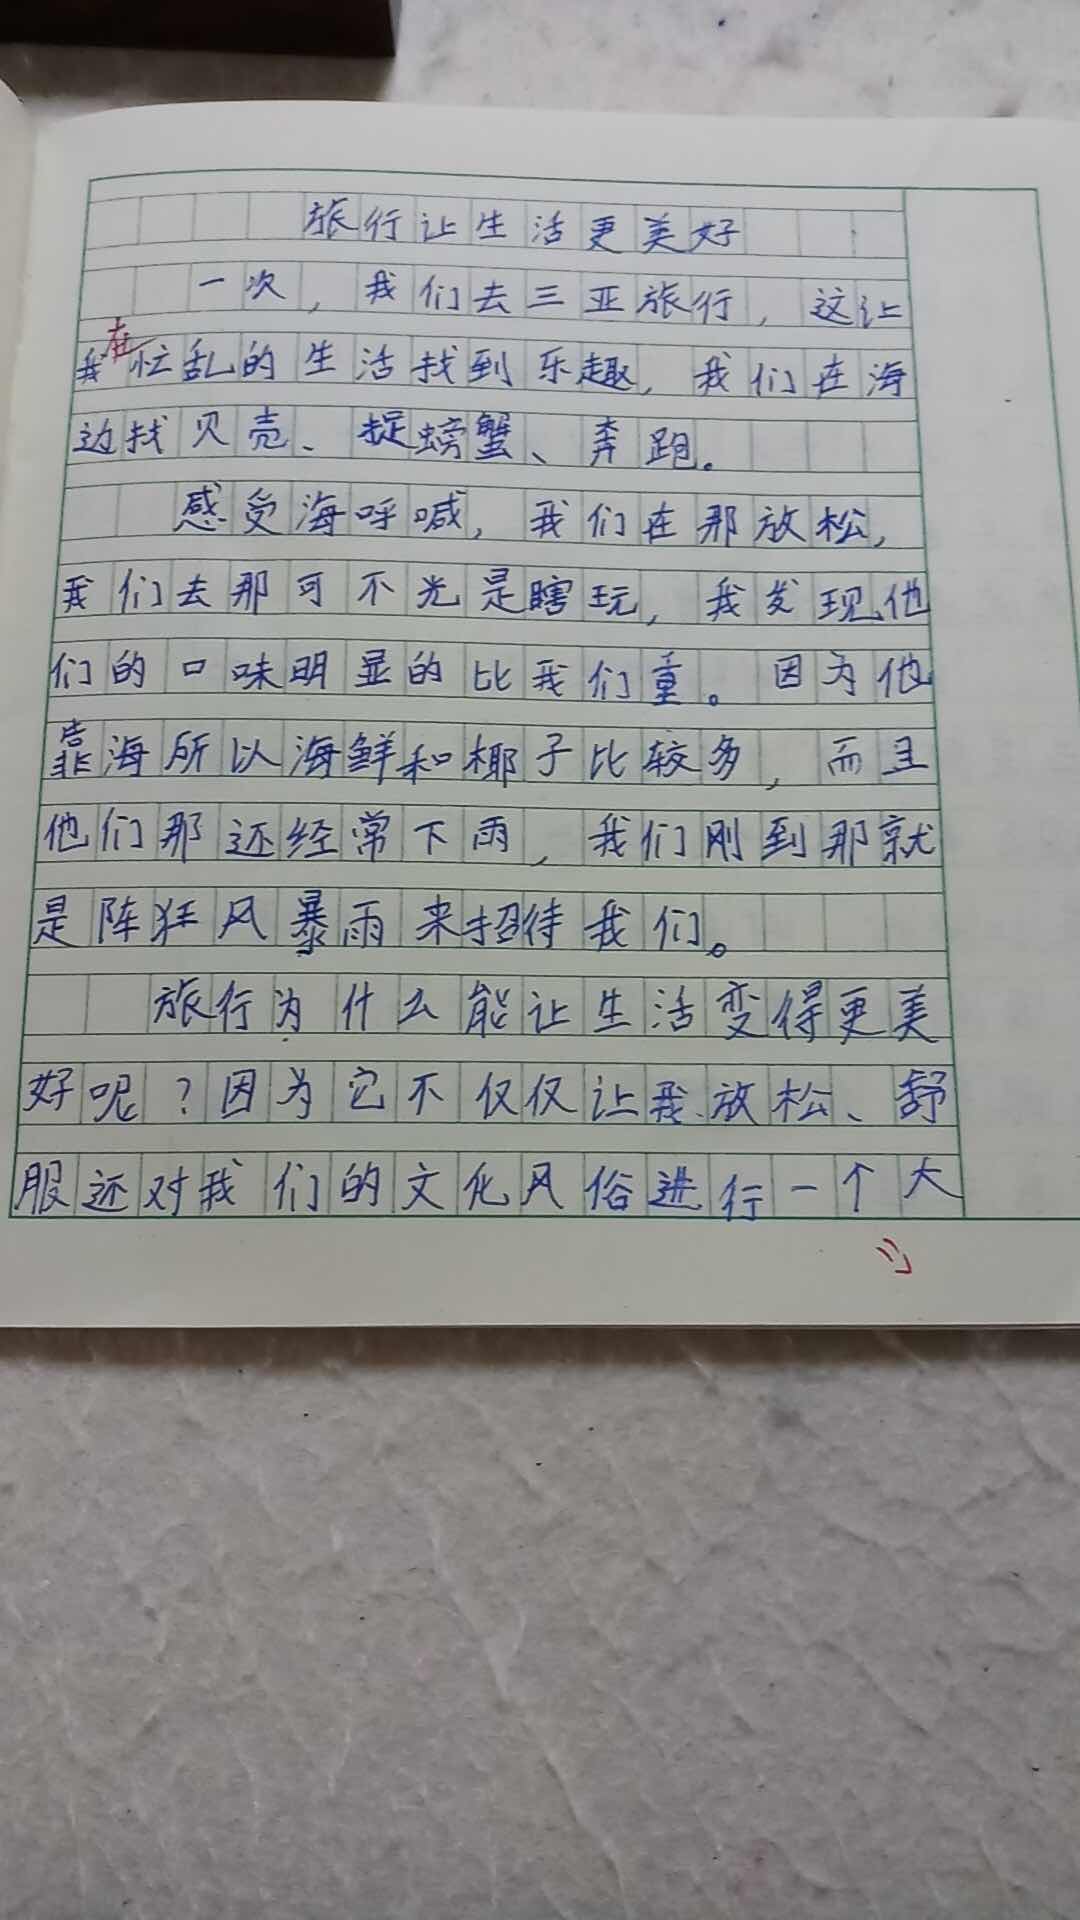 旅行让生活更美好
一次，我们去三亚旅行，这让
我在忙乱的生活找到乐趣，我们在海
边找贝壳、捉螃蟹、奔跑。
感受海呼喊，我们在那放松，
我们去那可不光是瞎玩，我发现他
们的口味明显的比我们重。因为他
靠海所以海鲜和椰子比较多，而且
他们那还经常下雨，我们刚到那就
是阵狂风暴雨来招待我们。
旅行为什么能让生活变得更美
好呢？因为它不仅仅让我放松、舒
服还对我们的文化风俗进行一个大